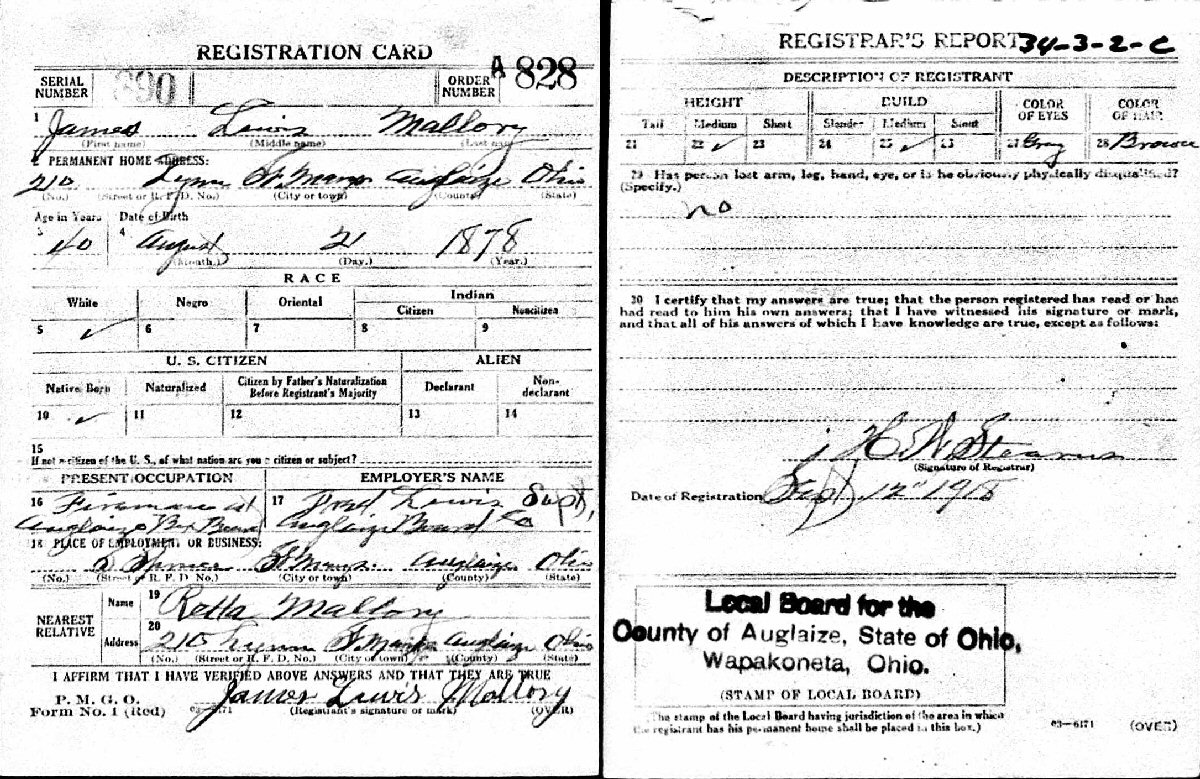 REGISTRATION CARD
SERIAL NUMBER 890 ORDER NUMBER A828
1 James Lewis Mallory
(First name) (Middle name) (Last name)
2 PERMANENT HOME ADDRESS:
210 Lynn St Marys Auglaize Ohio
(No.) (Street or R. F. D. No.) (City or town) (County) (State)
Age in Years Date of Birth
3 40 4 August 21 1878
(Month.) (Day.) (Year.)
RACE
White Negro Oriental Indian
Citizen Noncitizen
5 ✓ 6 7 8 9
U. S. CITIZEN ALIEN
Native Born Naturalized Citizen by Father's Naturalization Before Registrant's Majority Declarant Non-declarant
10 ✓ 11 12 13 14
15
If not a citizen of the U. S., of what nation are you a citizen or subject?
PRESENT OCCUPATION EMPLOYER'S NAME
16 Fireman at 17 Lewis Supt,
Auglaize Box Board Auglaize Board Co
18 PLACE OF EMPLOYMENT OR BUSINESS:
St Marys Auglaize Ohio
(No.) (Street or R. F. D. No.) (City or town) (County) (State)
NEAREST RELATIVE
Name 19 Retta Mallory
Address 20 210 Lynn St Marys Auglaize Ohio
(No.) (Street or R. F. D. No.) (City or town) (County) (State)
I AFFIRM THAT I HAVE VERIFIED ABOVE ANSWERS AND THAT THEY ARE TRUE
P. M. G. O.
Form No. 1 (Red) 03—6171 James Lewis Mallory
(Registrant's signature or mark) (OVER)
REGISTRAR'S REPORT 34-3-2-C
DESCRIPTION OF REGISTRANT
HEIGHT BUILD COLOR OF EYES COLOR OF HAIR
Tall Medium Short Slender Medium Stout
21 22 ✓ 23 24 25 ✓ 26 27 Gray 28 Brown
29 Has person lost arm, leg, hand, eye, or is he obviously physically disqualified?
(Specify.)
no
30 I certify that my answers are true; that the person registered has read or has
had read to him his own answers; that I have witnessed his signature or mark,
and that all of his answers of which I have knowledge are true, except as follows:
H. W. Stearns
(Signature of Registrar)
Date of Registration Sept 12" 1918
Local Board for the
County of Auglaize, State of Ohio,
Wapakoneta, Ohio.
(STAMP OF LOCAL BOARD)
(The stamp of the Local Board having jurisdiction of the area in which
the registrant has his permanent home shall be placed in this box.)
03—6171 (OVER)